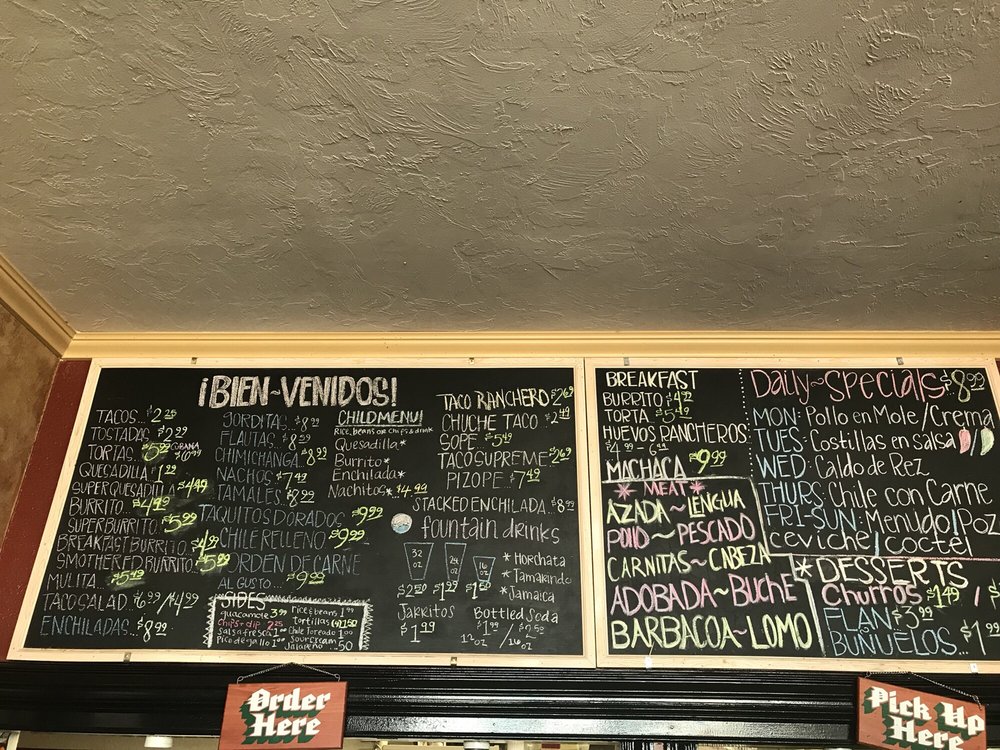 ¡BIEN~VENIDOS!
TACOS... $2.25
TOSTADAS. $2.99
TORTAS. $5.02
QUECADILLA $1.99
SUPER QUESADILLA $4.49
BURRITO. $4.99
SUPER BURRITO. $5.99
BREAKFAST BURRITO. $4.99
SMOTHERED BURRITO. $5.99
MULITA. $5.49
TACO SALAD. $6.99/$4.99
ENCHILADAS... $8.99
GORDITAS. $8.99
FLAUTAS. $8.59
CHIMICHANGA.. $8.99
NACHOS $7.49
TAMALES $8.99
TAQUITOS DORADOS $9.99
CHILE RELLENO. $9.99
ORDEN DE CARNE
AL GUSTO... $9.99
SIDES
guacamole 3.99
chips+dip 2.25
salsa fresca 1.00
Pico de gallo 1.00
rice & beans 1.99
tortillas
Chile Toreado 1.00
Sour cream
Jalapeño .50
CHILD MENU!
Rice, beans or chips & drink
Quesadilla*
Burrito*
Enchilada*
Nachitos* $4.99
TACO RANCHERO $2.69
CHUCHE TACO $2.49
SOPE. $5.49
TACO SUPREME. $2.69
PIZOPE. $7.49
STACKED ENCHILADA. $8.99
fountain drinks
32 oz
24 oz
16 oz
$2.50 $1.99 $1.50
* Horchata
* Tamarindo
* Jamaica
Jarritos
$1.99
Bottled Soda
$1.99/$2.50
12 oz / 16 oz
BREAKFAST
BURRITO $4.99
TORTA $5.49
HUEVOS RANCHEROS
$4.99 - 6.99
MACHACA $9.99
* MEAT *
AZADA~LENGUA
POLLO~PESCADO
CARNITAS~CABEZA
ADOBADA~BUCHE
BARBACOA~LOMO
Daily~Specials $8.99
MON: Pollo en Mole/Crema
TUES: Costillas en salsa
WED: Caldo de Rez
THURS: Chile con Carne
FRI-SUN: Menudo/Poz
ceviche/coctel
* DESSERTS
Churros $1.49/
FLAN $3.99
BUÑUELOS... $1.99
Order
Here
Pick Up
Here